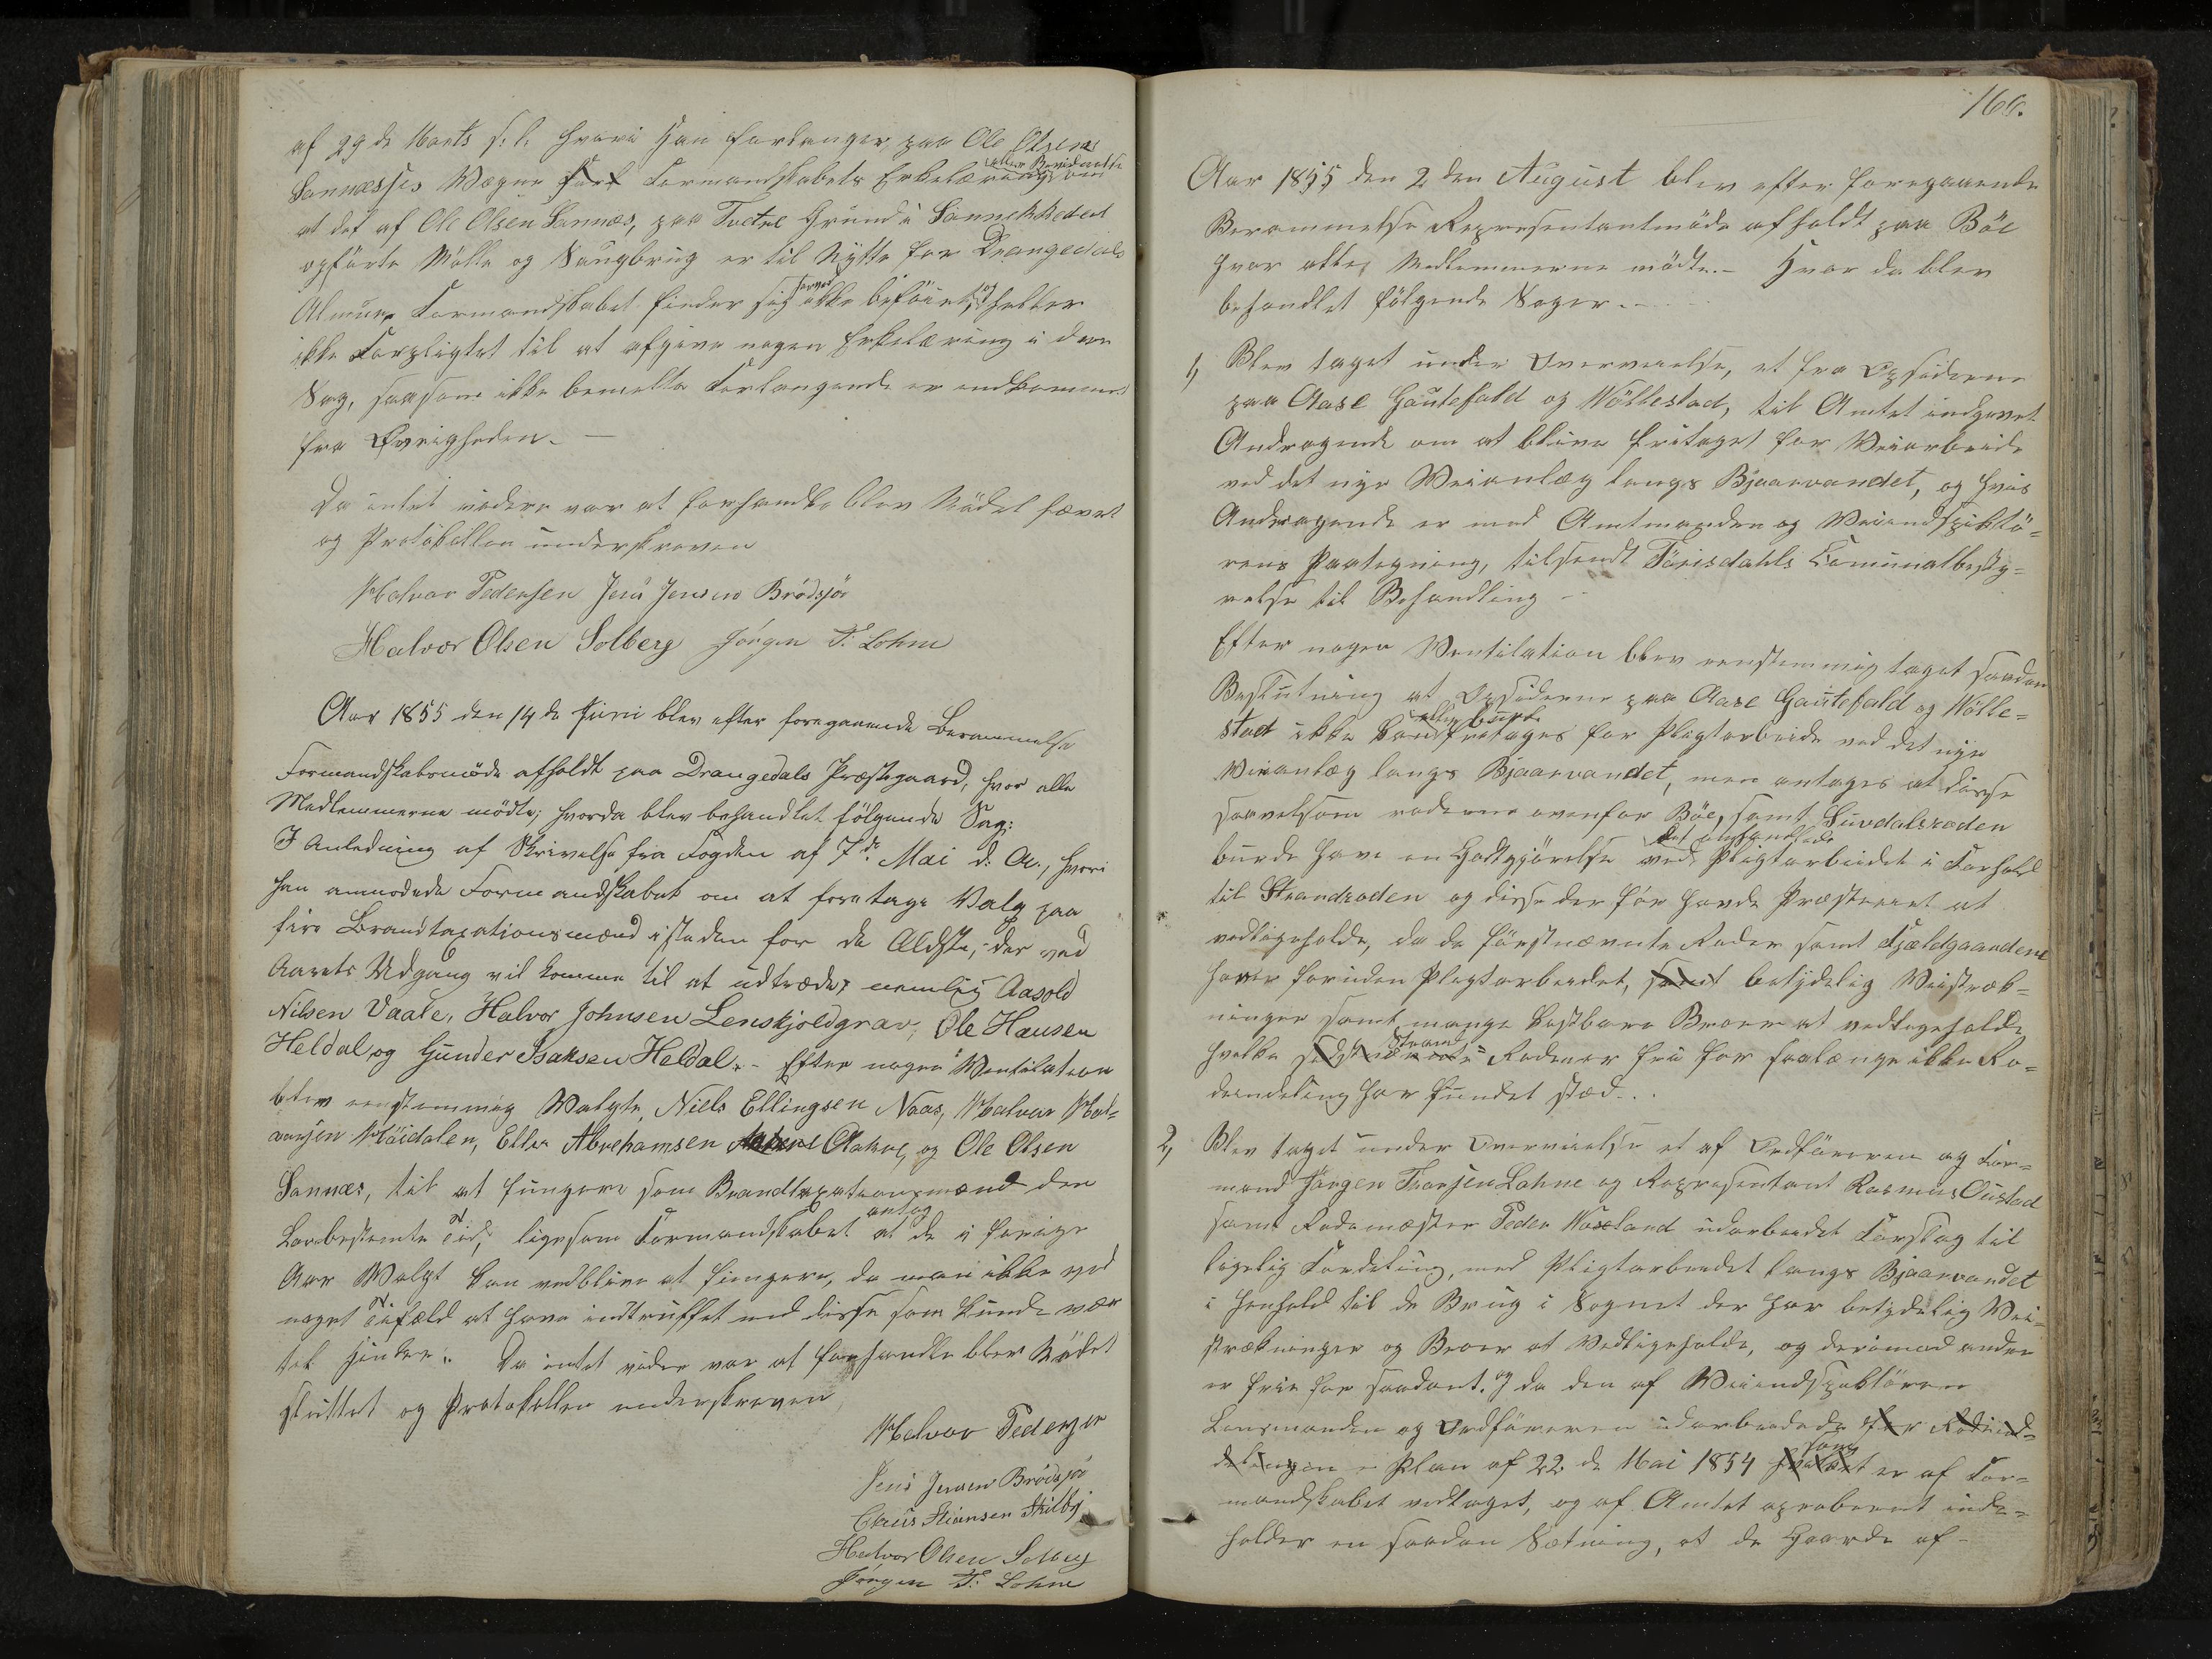 af 29de Marts s: l: hvori han forlanger paa Ole Olsens
Sannæsses Vegne Formandskabets Erkelæring eller Bevidnelse om
at det af Ole Olsen Sannæs, paa Tvetne Grund i Sannekkeded
opførte Mølle og Saugbrug er til Nytte for Drangedals
Almue, Formandskabet finder sig ikke beføiet og heller
ikke Forpligtet til at afgive nogen Erkelæring i den
Sag, saasom ikke bemelte Forlangende er indkommen
fra Øvrigheden. —
Da intet videre var at forhandle blev Mødet hævet
og Protokollen underskreven
Halvor Pedersen Jens Jensen Brødsjø
Halvor Olsen Solberg Jørgen T: Lohne
Aar 1855 den 14de Juni blev efter foregaaende Berammelse
Formandskabsmøde afholdt paa Drangedals Præstegaard, hvor alle
Medlemmerne mødte; hvorda blev behandlet følgende Sag:
I Anledning af Skrivelse fra Fogden af 7de Mai d: A:, hvori
han anmodede Formandskabet om at foretage Valg paa
fire Brandtaxationsmænd isteden for de Ældste, der ved
Aarets Udgang vil komme til at udtræde; nemlig Aasold
Nilsen Vaale, Halvor Johnsen Lenskjoldgrav, Ole Hansen
Heldal og Gunder Isaksen Heldal. - Efter nogen Ventilation
blev eenstemmig Valgte, Niels Ellingsen Naas, Halvor Hal=
vorsen Høidalen, Ellev Abrehamsen Aakre, og Ole Olsen
Sannæs, til at fungere som Brandtaxationsmænd den
Lovbestemte Tid, ligesom Formandskabet antog at de i forrige
Aar Valgt kan vedblive at fungere, da man ikke ved
noget Tilfæld at have indtruffet med disse som kunde være
til Hinder. Da intet videre var at forhandle blev Mødet
sluttet og Protokollen underskreven
Halvor Pedersen
Jens Jensen Brødsjø
Claus Stiansen
Halvor Olsen Solberg
Jørgen T: Lohne
166.
Aar 1855 den 2den August blev efter foregaaende
Berammelse Representantmøde afholdt paa Bøe
hvor alle Medlemmerne mødte. - Hvor da blev
behandlet følgende Sager. -
1, Blev taget under Overveielse, et fra Opsidderne
paa Aase Gautefald og Wøllestad, til Amtet indgivet
Andragende om at blive fritaget for Veiarbeide
ved det nye Veianlæg langs Bjaarvandet, og hvis
Andragende er med Amtmanden og Veiindspektø=
rens Paategning, tilsendt Tørisdahls Comunalbesty=
relse til Behandling -
Efter nogen Ventilation blev eenstemmig taget saadan
Beslutning at Opsidderne paa Aase Gautefald og Wølle=
stad ikke kan eller burde fritages for Pligtarbeide ved det nye
Veianlæg langs Bjaarvandet, men antages at disse
saavelsom roderne ovenfor Bøe, samt Suvdalsroden
burde have en Godtgjørelse ved det omhandlede Pligtarbeidet i Forhold
til Strandroden og disse der før havde Præsteveiet at
vedligeholde, da de førstnævnte Roder samt Fjeldgaardene
have foruden Pligtarbeidet, betydelig Veistræk=
ninger samt mange kostbare Broer at vedligeholde
hvilke Strand= Roden er fri for saalænge ikke Ro=
deindeling har fundet sted. . .
2, Blev taget under Overveielse et af Ordføreren og For=
mand Jørgen Thorsen Lohne og Representant Rasmus Oustad
samt Rodemæster Peder Woxland udarbeidet Forslag til
ligelig Fordeling, med Pligtarbeidet langs Bjaarvandet
i Henhold til de Brug i Sognet der har betydelig Vei=
strækninger og Broer at Vedligeholde, og derimod andre
er frie for saadant. og da den af Veiindspektøren
Lensmanden og Ordføreren udarbeidede
Plan af 22de Mai 1854 som er af For=
mandskabet vedtaget, og af Amtet aproberet inde=
holder en saadan Sætning, at de Gaarde af -